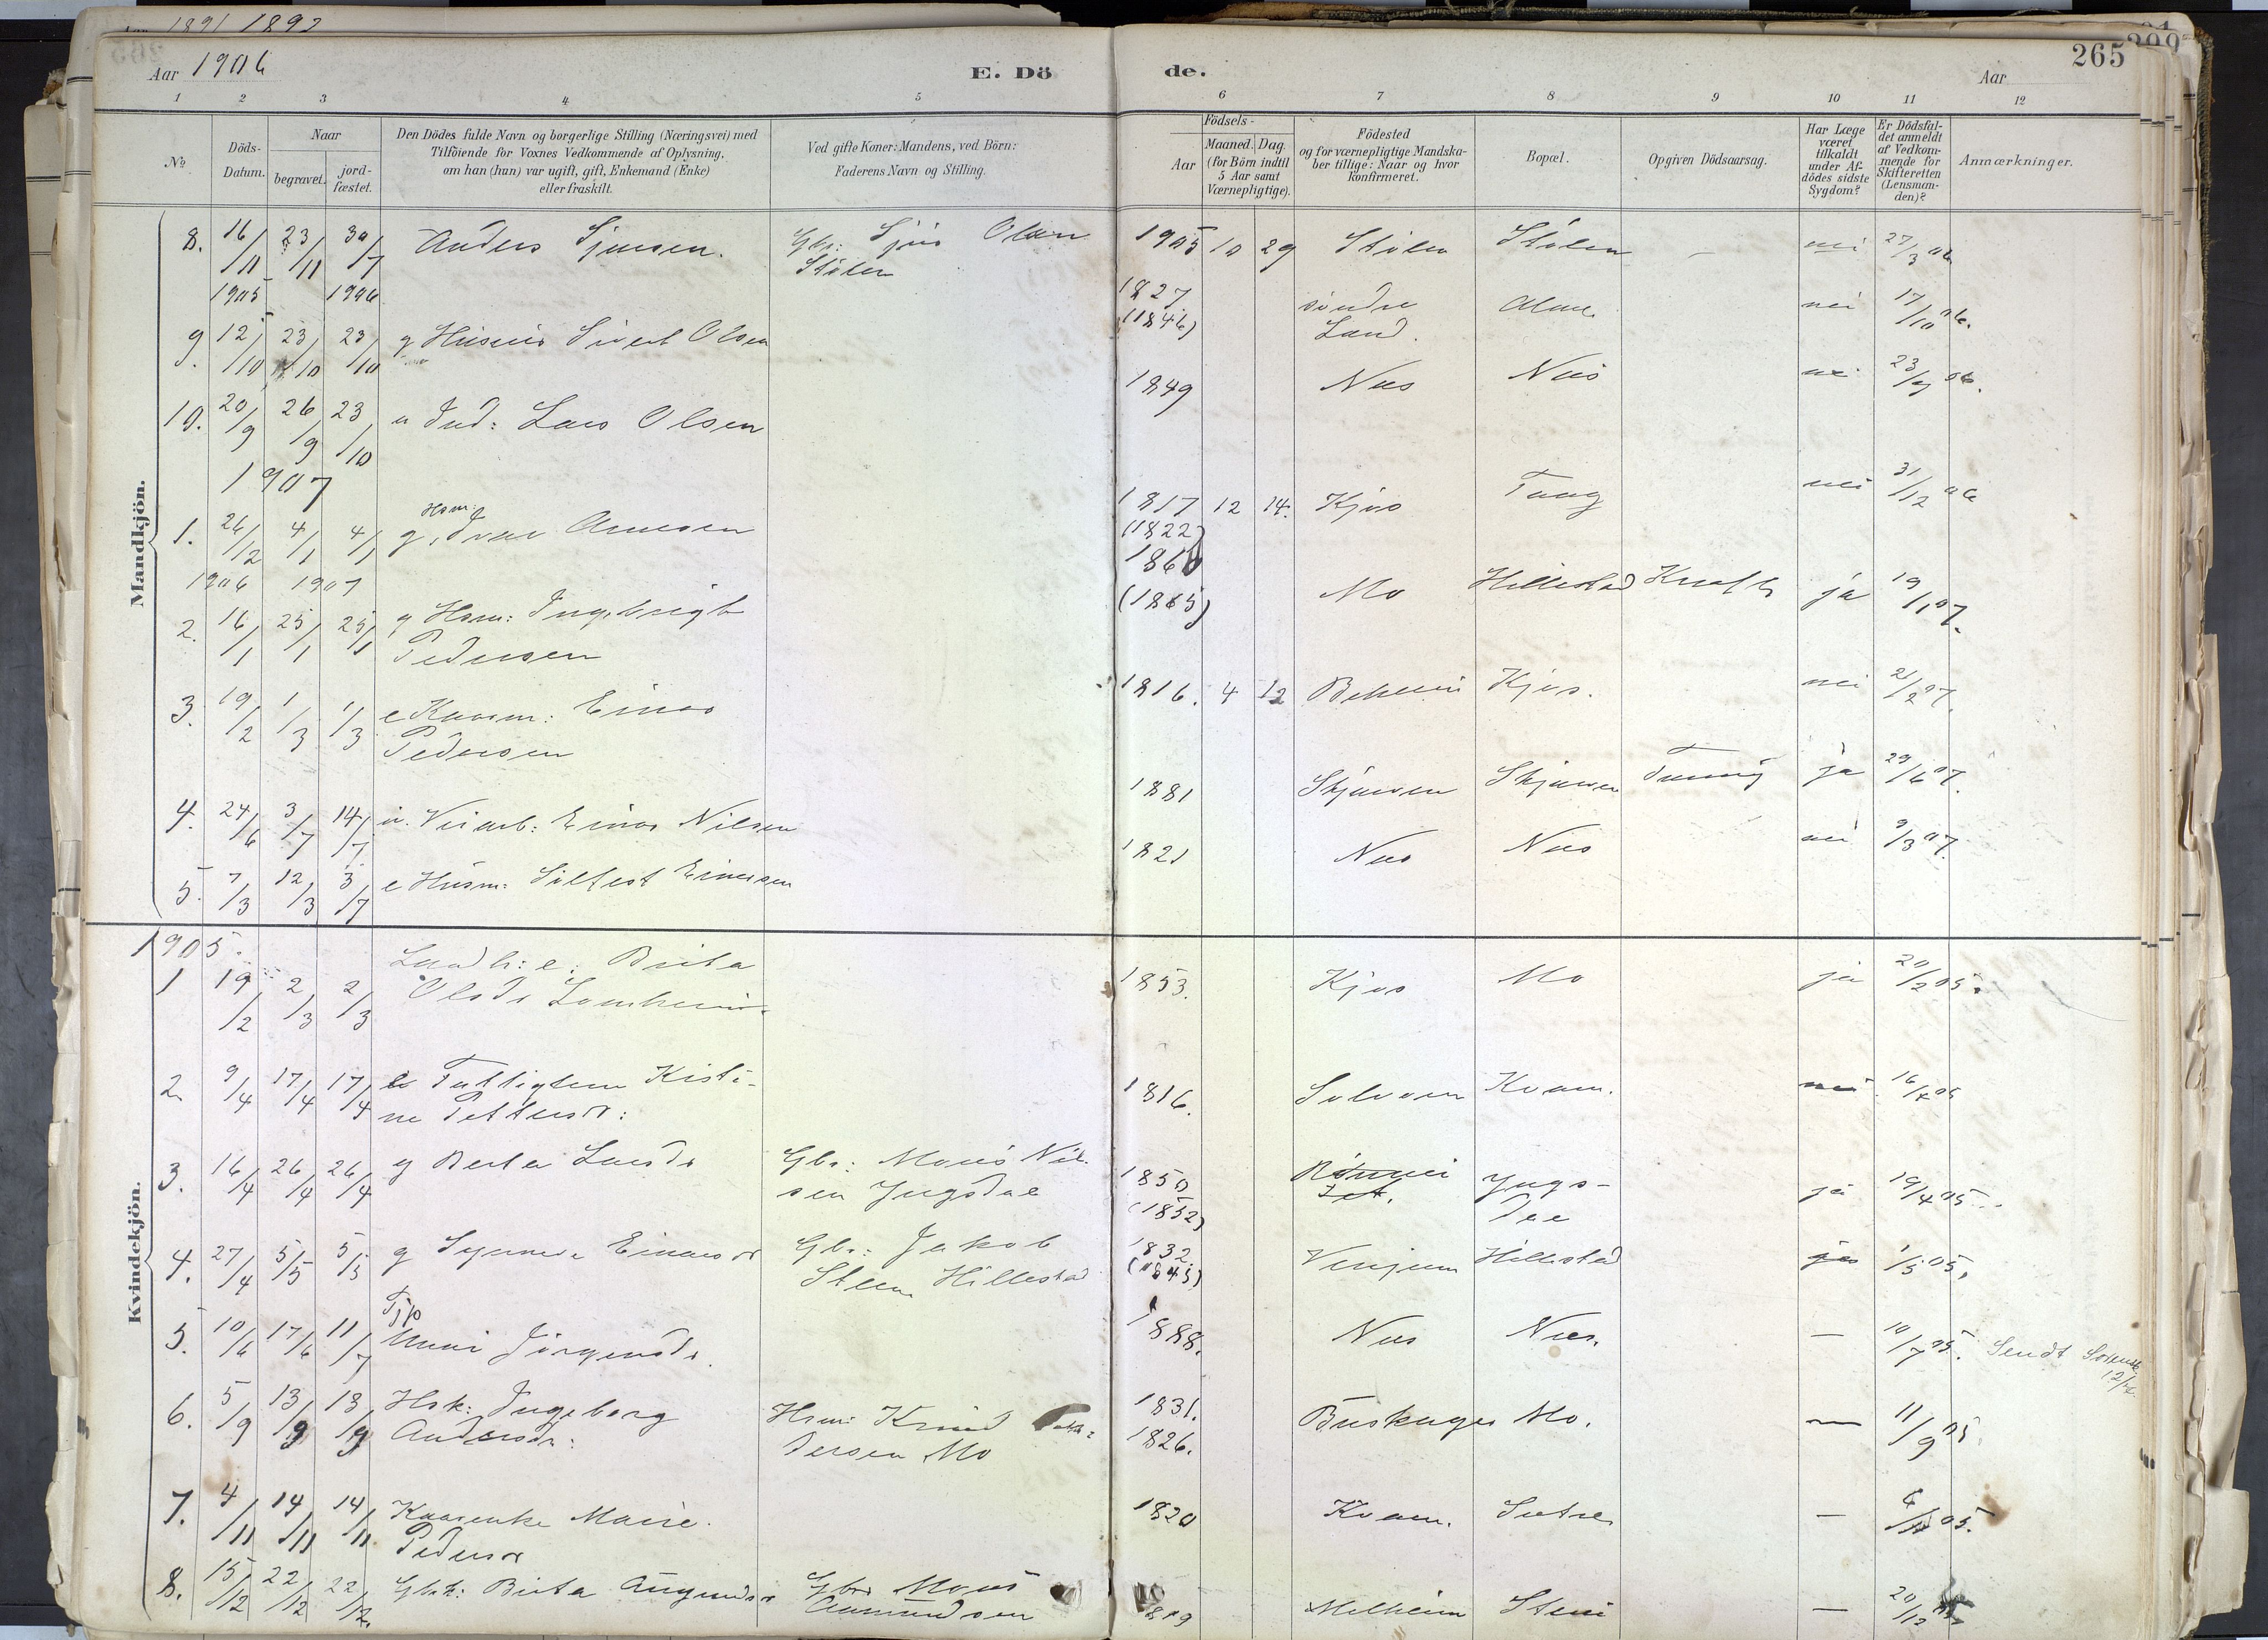 1891 1892
Aar 1906 E. Dö de. Aar 265
1 2 3 4 5 6 7 8 9 10 11 12
No. Döds-Datum. Naar begravet. jordfæstet. Den Dödes fulde Navn og borgerlige Stilling (Næringsvei) med Tilföiende for Voxnes Vedkommende af Oplysning, om han (hun) var ugift, gift, Enkemand (Enke) eller fraskilt. Ved gifte Koner: Mandens, ved Börn: Faderens Navn og Stilling. Födsels- Aar Maaned. Dag. (for Börn indtil 5 Aar samt Værnepligtige). Födested og for værnepligtige Mandskaber tillige: Naar og hvor konfirmeret. Bopæl. Opgiven Dödsaarsag. Har Læge været tilkaldt under Afdödes sidste Sygdom? Er Dödsfaldet anmeldt af Vedkommende for Skifteretten (Lensmanden)? Anmærkninger.
Mandkjön.
8. 16/11 1905 23/11 30/7 1906 Anders Sjursen. Gbr: Sjur Olsen Stølen 1905 10 29 Stølen Stølen — nei 27/3 06
9. 12/10 23/10 23/10 g Husm Sivert Olsen 1827 (1846) søndre Land. nei 17/10 06.
10. 20/9 26/9 23/10 u Ind: Lars Olsen 1849 Nes Nes nei 23/9 06.
1907
1. 26/12 1906 4/1 1907 4/1 g. Hsm: Ivar Arnesen 1817 (1822) 12 14. Kjos Taug nei 31/12 06
2. 16/1 25/1 25/1 g Hsm: Ingebrigt Pedersen (1865) Mo Hillestad Kræft ja 19/1 07.
3. 19/2 1/3 1/3 e Kaarm: Einar Pedersen 1816. 4 12 Kjos. nei 21/2 07.
4. 24/6 3/7 14/7 u. Veiarb: Einar Nilsen 1881 Skjærven Skjærven ja 29/6 07.
5. 7/3 12/3 3/7 e Husm: Silfest Einersen 1821 Nes Nes nei 9/3 07.
Kvindekjön.
1905.
1 19/2 2/3 2/3 e: Brita Olsdr Lomheim. 1853. Kjos Mo ja 20/2 05.
2 9/4 17/4 17/4 e Fattiglem Kisti-
ne Pettersdr: 1816. Solvorn Kvam. nei 16/4 05
3. 16/4 26/4 26/4 g Berta Larsdr Gbr: Mons Nil-
sen Yngsdal 1850 (1852) Yngs-
dal ja 19/4 05
4. 27/4 5/5 5/5 g Synneva Einarsdr Gbr: Jakob Steen Hillestad 1832. (1843) Venjum Hillestad ja 1/5 05.
5. 10/6 17/6 11/7 Tjp Unni Jörgensdr. 1888. Nes Nes. — 10/7 05. Sendt
6. 5/9 13/9 13/9 Hsk: Ingeborg Andersdr: Hsm: Knud
dersen Mo 1831. 1826. Buskager Mo. — 11/9 05
7. 4/11 14/11 14/11 Kaarenke Marie Pedersdr 1820 Kvam. Sætre — 6/11 05.
8. 15/12 22/12 22/12. Gbrk: Brita Augundsdr Gbr Mons Aamundsen 1819 Melheim Steni — 20/12